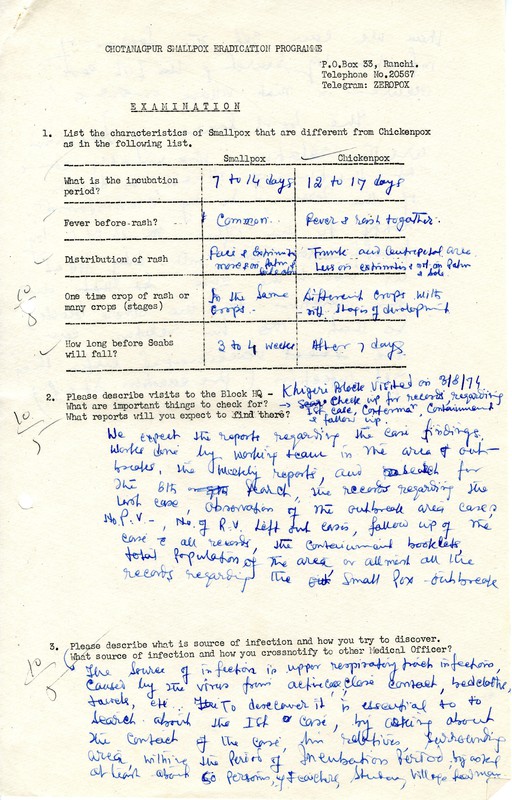 CHOTANAGPUR SMALLPOX ERADICATION PROGRAMME
P.O.Box 33, Ranchi.
Telephone No.20567
Telegram: ZEROPOX
EXAMINATION
1. List the characteristics of Smallpox that are different from Chickenpox
as in the following list.
Smallpox Chickenpox
What is the incubation period? 7 to 14 days 12 to 17 days
Fever before rash? Common. Fever & rash together.
Distribution of rash Face & Extremity more on palm & Trunk and Centrepetal area Less on extremities & not on palm & sole
One time crop of rash or many crops (stages) In the same crops. Different crops with diff. stages of development
How long before Scabs will fall? 3 to 4 weeks After 7 days.
10
8
2. Please describe visits to the Block HQ - Khijri Block visited on 3/8/74
What are important things to check for? → Check up for records regarding
What reports will you expect to find there? Ist case, Containment
& follow up.
10
5
We expect the reports regarding the case findings,
works done by working team in the area of out-
breaks, the weekly reports, and for
the 6th search, the records regarding the
last case, observation of the outbreak area cases
No. P.V-, No. of R.V. Left out cases, follow up of the
case & all records, the containment booklets,
total population of the area or allmost all the
records regarding the Small Pox-outbreak
3. Please describe what is source of infection and how you try to discover.
What source of infection and how you crossnotify to other Medical Officer?
10
The Source of infection is upper respiratory tract infections,
Caused by the virus from active case, close contact, bedclothe,
towels, etc. To descover it is essential to to
search about the Ist case, by asking about
the contact of the case, his relatives, Surrounding
area, withing the Period of Incubation Period, by asking
at least about persons, Teacher, Student, Village